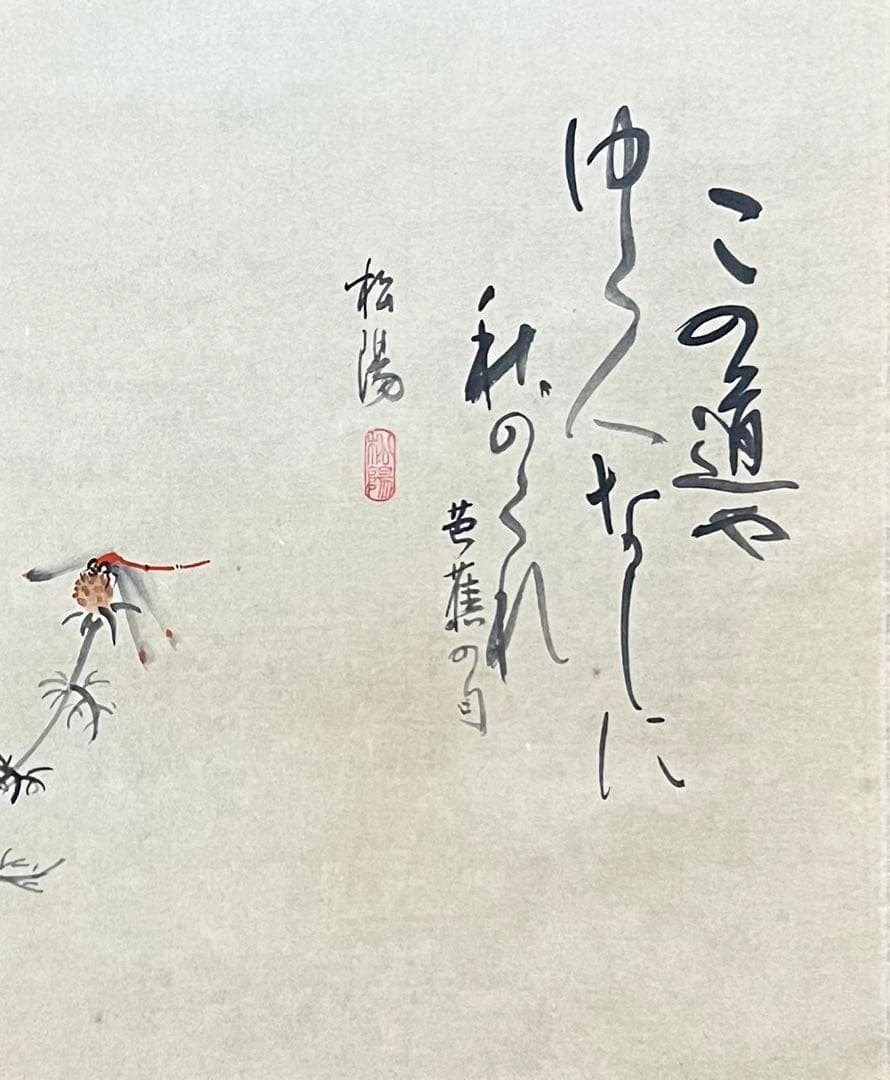 この道や
ゆく人なしに
秋のくれ
芭蕉の句
松陽
松陽